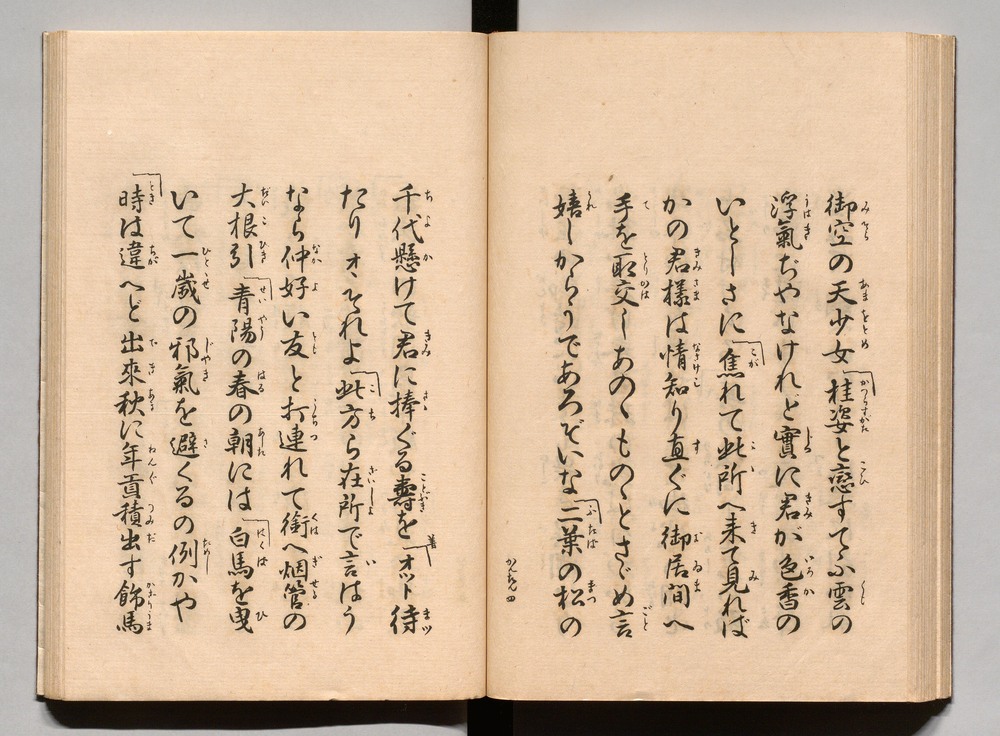 御空の天少女「桂姿と戀すてふ雲の
浮氣ぢやなけれど實に君が色香の
いとしさに「焦れて此所へ来て見れば
かの君樣は情知り直ぐに御居間へ
手を取交しあのゝものゝとさゞめ言
嬉しからうであろぞいな「二葉の松の
千代懸けて君に捧ぐる壽を「オット待
たりオヽそれよ「此方ら在所で言はう
なら仲好い友と打連れて銜へ烟管の
大根引「青陽の春の朝には「白馬を曳
いて一歳の邪氣を避くるの例かや
「時は違へど出來秋に年貢積出す飾馬